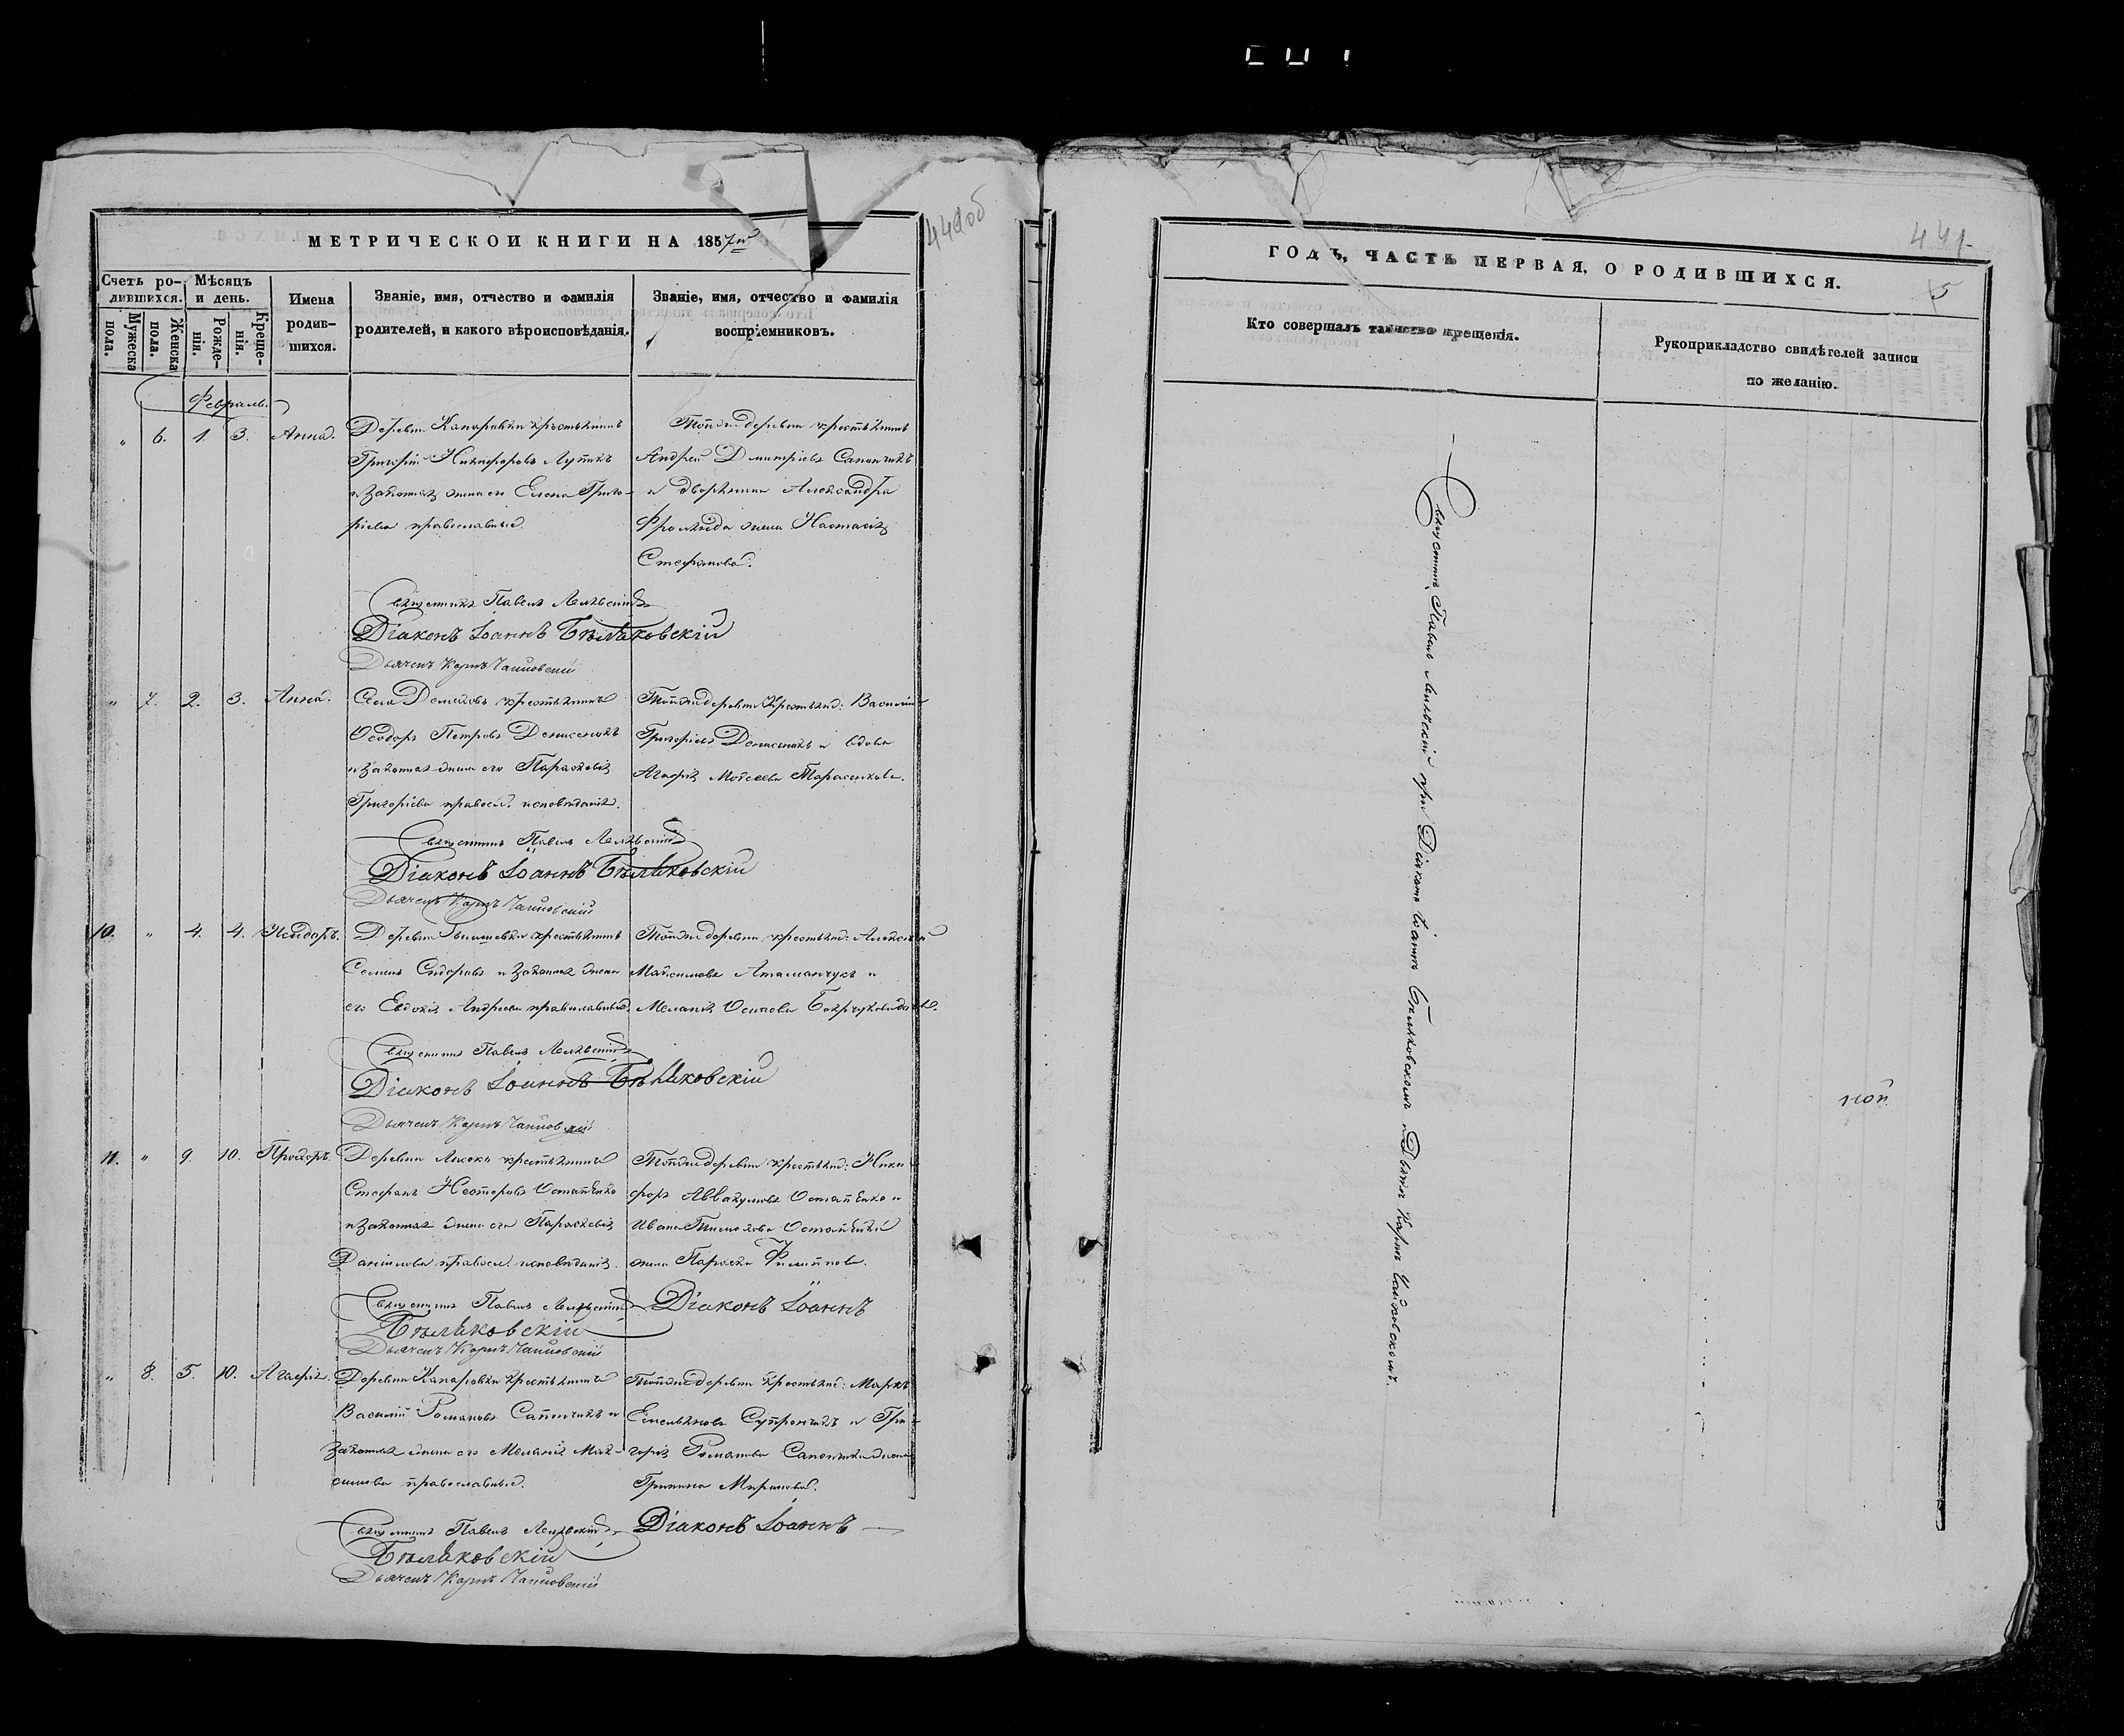 МЕТРИЧЕСКОЙ КНИГИ НА 1857й
440об
Счетъ ро-
дившихся.
Мѣсяцъ
и день.
Имена
родив-
шихся.
Званіе, имя, отчество и фамилія
родителей, и какого вѣроисповѣданія.
Званіе, имя, отчество и фамилія
воспріемниковъ.
Мужеска
пола.
Женска
пола.
Рожде-
нія.
Креще-
нія.
Февраль.
" 6. 1. 3. Анна.
Деревни крестьянинъ
Григорій Никифоровъ
и законная жена его Елена Григо-
ріева православные.
Тойже деревни крестьянинъ
Андрей Димитріевъ Сапончикъ
и дворянина Александра
жена Настасія
Стефанова.
Священникъ Павелъ
Діаконъ Іоаннъ Бѣляковскій
Дьячекъ Карпъ Чайковскій
" 7. 2. 3. Анна.
Села крестьянинъ
Ѳеодоръ Петровъ Денисенко
и законная жена его Параскевія
Григоріева правосл. исповѣданія.
Тойже деревни крестьян: Василій
Григоріевъ и вдова
Агафія Моѵсеева Тарасенкова.
Священникъ Павелъ
Діаконъ Іоаннъ Бѣляковскій
Дьячекъ Карпъ Чайковскій
10. " 4. 4. Исидоръ.
Деревни крестьянинъ
Семенъ Сидоровъ и законная жена
его Евдокія Андреева православные.
Тойже деревни крестьян: Алексѣй
Максимовъ Атаманчукъ и
Меланія Осипова
Священникъ Павелъ
Діаконъ Іоаннъ Бѣляковскій
Дьячекъ Карпъ Чайковскій
11. " 9. 10. Прохоръ.
Деревни крестьянинъ
Стефанъ Несторовъ Остапенко
и законная жена его Параскевія
Даніилова правосл. исповѣданія.
Тойже деревни крестьян: Ники
форъ Аввакумовъ Остапенко и
Ивана Тимохова Остапенка
жена Параска Филиппова.
Священникъ Павелъ
Діаконъ Іоаннъ
Бѣляковскій
Дьячекъ Карпъ Чайковскій
" 8. 5. 10. Агафія.
Деревни крестьянинъ
Василій Романовъ Сапончикъ и
законная жена его Меланія Мак-
симова православные.
Тойже деревни крестьян: Марко
Емельяновъ Супрончикъ и Гри-
горія Романова Сапончика жена
Грипина Миронова.
Священникъ Павелъ
Діаконъ Іоаннъ
Бѣляковскій
Дьячекъ Карпъ Чайковскій
441
5
ГОДЪ, ЧАСТЬ ПЕРВАЯ, О РОДИВШИХСЯ.
Кто совершалъ таинство крещенія.
Рукоприкладство свидѣтелей записи
по желанію.
Священникъ Павелъ при Діаконѣ Іоаннѣ Бѣляковскомъ и Дьячкѣ Карпѣ Чайковскомъ.